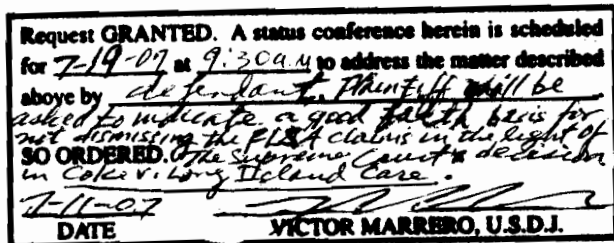 Request GRANTED. A status conference herein is scheduled
for 7-19-07 at 9:30 a.m to address the matter described
above by defendant. Plaintiff will be
asked to indicate a good faith basis for
not dismissing the FLSA claims in the light of
SO ORDERED. The Supreme Court's decision
in Coke v. Long Island Care.
7-11-07
DATE VICTOR MARRERO, U.S.D.J.